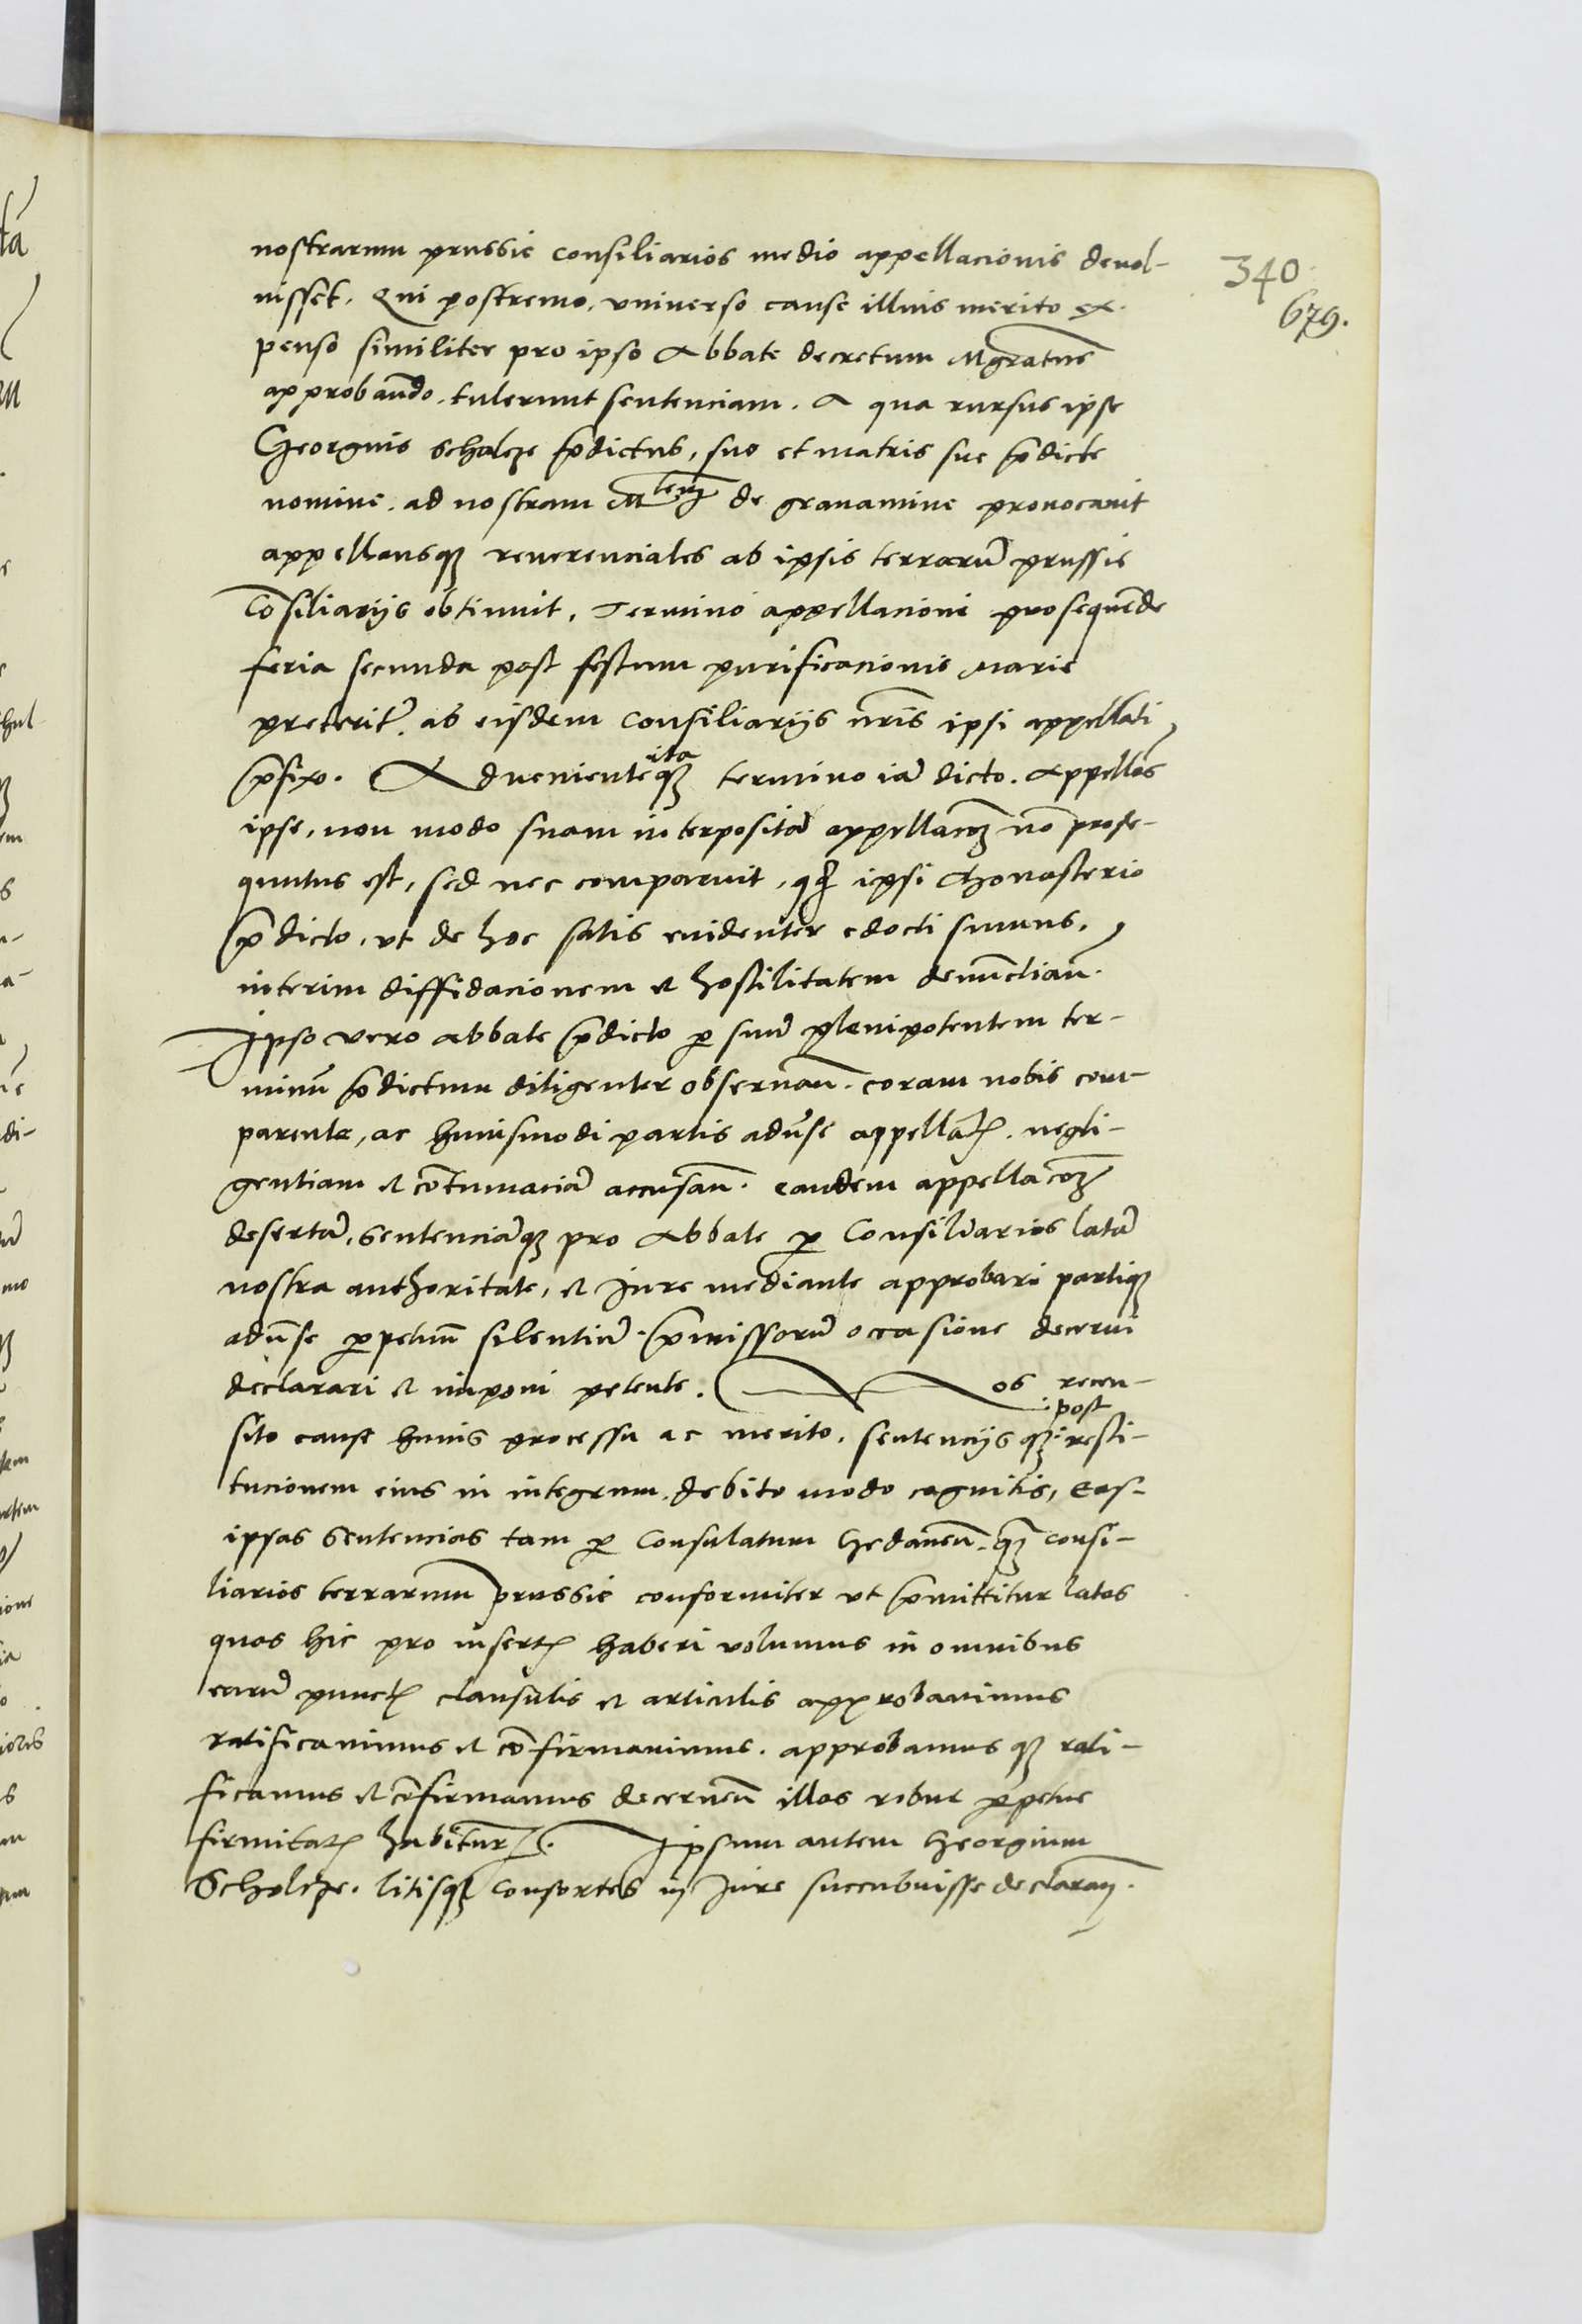 340
679.
nostrarum prussie consiliarios medio appellacionis devol-
uisset. Qui postremo, vniuerso cause illius merito ex-
penso similiter pro ipso Abbate decretum Mgratus
approbando. tulerunt sentenciam. A qua rursus ipse
Georgius Scholcze p̄dictus, suo et matris sue p̄dicte
nomine. ad nostram M^tem de grauamine prouocauit
appellansq₃ reuerenciales ab ipsis terrarū prussie
Cōsiliarijs obtinuit. Termino appellacioni prosequēde
feria secunda post festum purificacionis Marie
preterit̄. ab eisdem Consiliarijs nr̄is ipsi appellati
p̄fixo. Aduenienteq₃ ita termino iā dicto. Appellās
ipse, non modo suam interpositā appellacōꝫ nō prose-
quutus est, sed nec comparuit, ipsi Monasterio
p̄dicto, vt de hoc satis euidenter edocti sumus,
interim diffidacionem et hostilitatem denuncciaū.
Ipso vero abbate p̄dicto ꝑ suū plenipotentem ter-
minū p̄dictum diligenter obseruaū. coram nobis com-
parente, ac huiusmodi partis adūse appellatꝭ. negli-
gentiam et cōtumaciā accusaū. eandem appellacōꝫ
desertā, sentenciāq₃ pro Abbate ꝑ Consiliarios latā
nostra authoritate, et Jure mediante approbari partiq₃
adūse ꝑpetuū silentiū. p̄missorū occasione decerni
declarari et imponi petente. Nos recen-
sito cause huius processu ac merito. sentencijs q₃ post resti-
tucionem eius in integrum. debito modo cognitis, Eas-
ipsas Sentencias tam ꝑ Consulatum Gedaneū. q̄ꝫ consi-
liarios terrarum prussie conformiter vt p̄mittitur latas
quas hic pro insertꝭ haberi volumus in omnibus
earū punctꝭ clausulis et articulis approbauimus
ratificauimus et cōfirmauimus. approbamus q₃ rati-
ficamus et cōfirmamus decerneū illas robur ꝑpetue
firmitatꝭ habitur̄. Ipsum autem Georgium
Scholcze. litisq₃ consortes in Jure succubuisse declaraū.